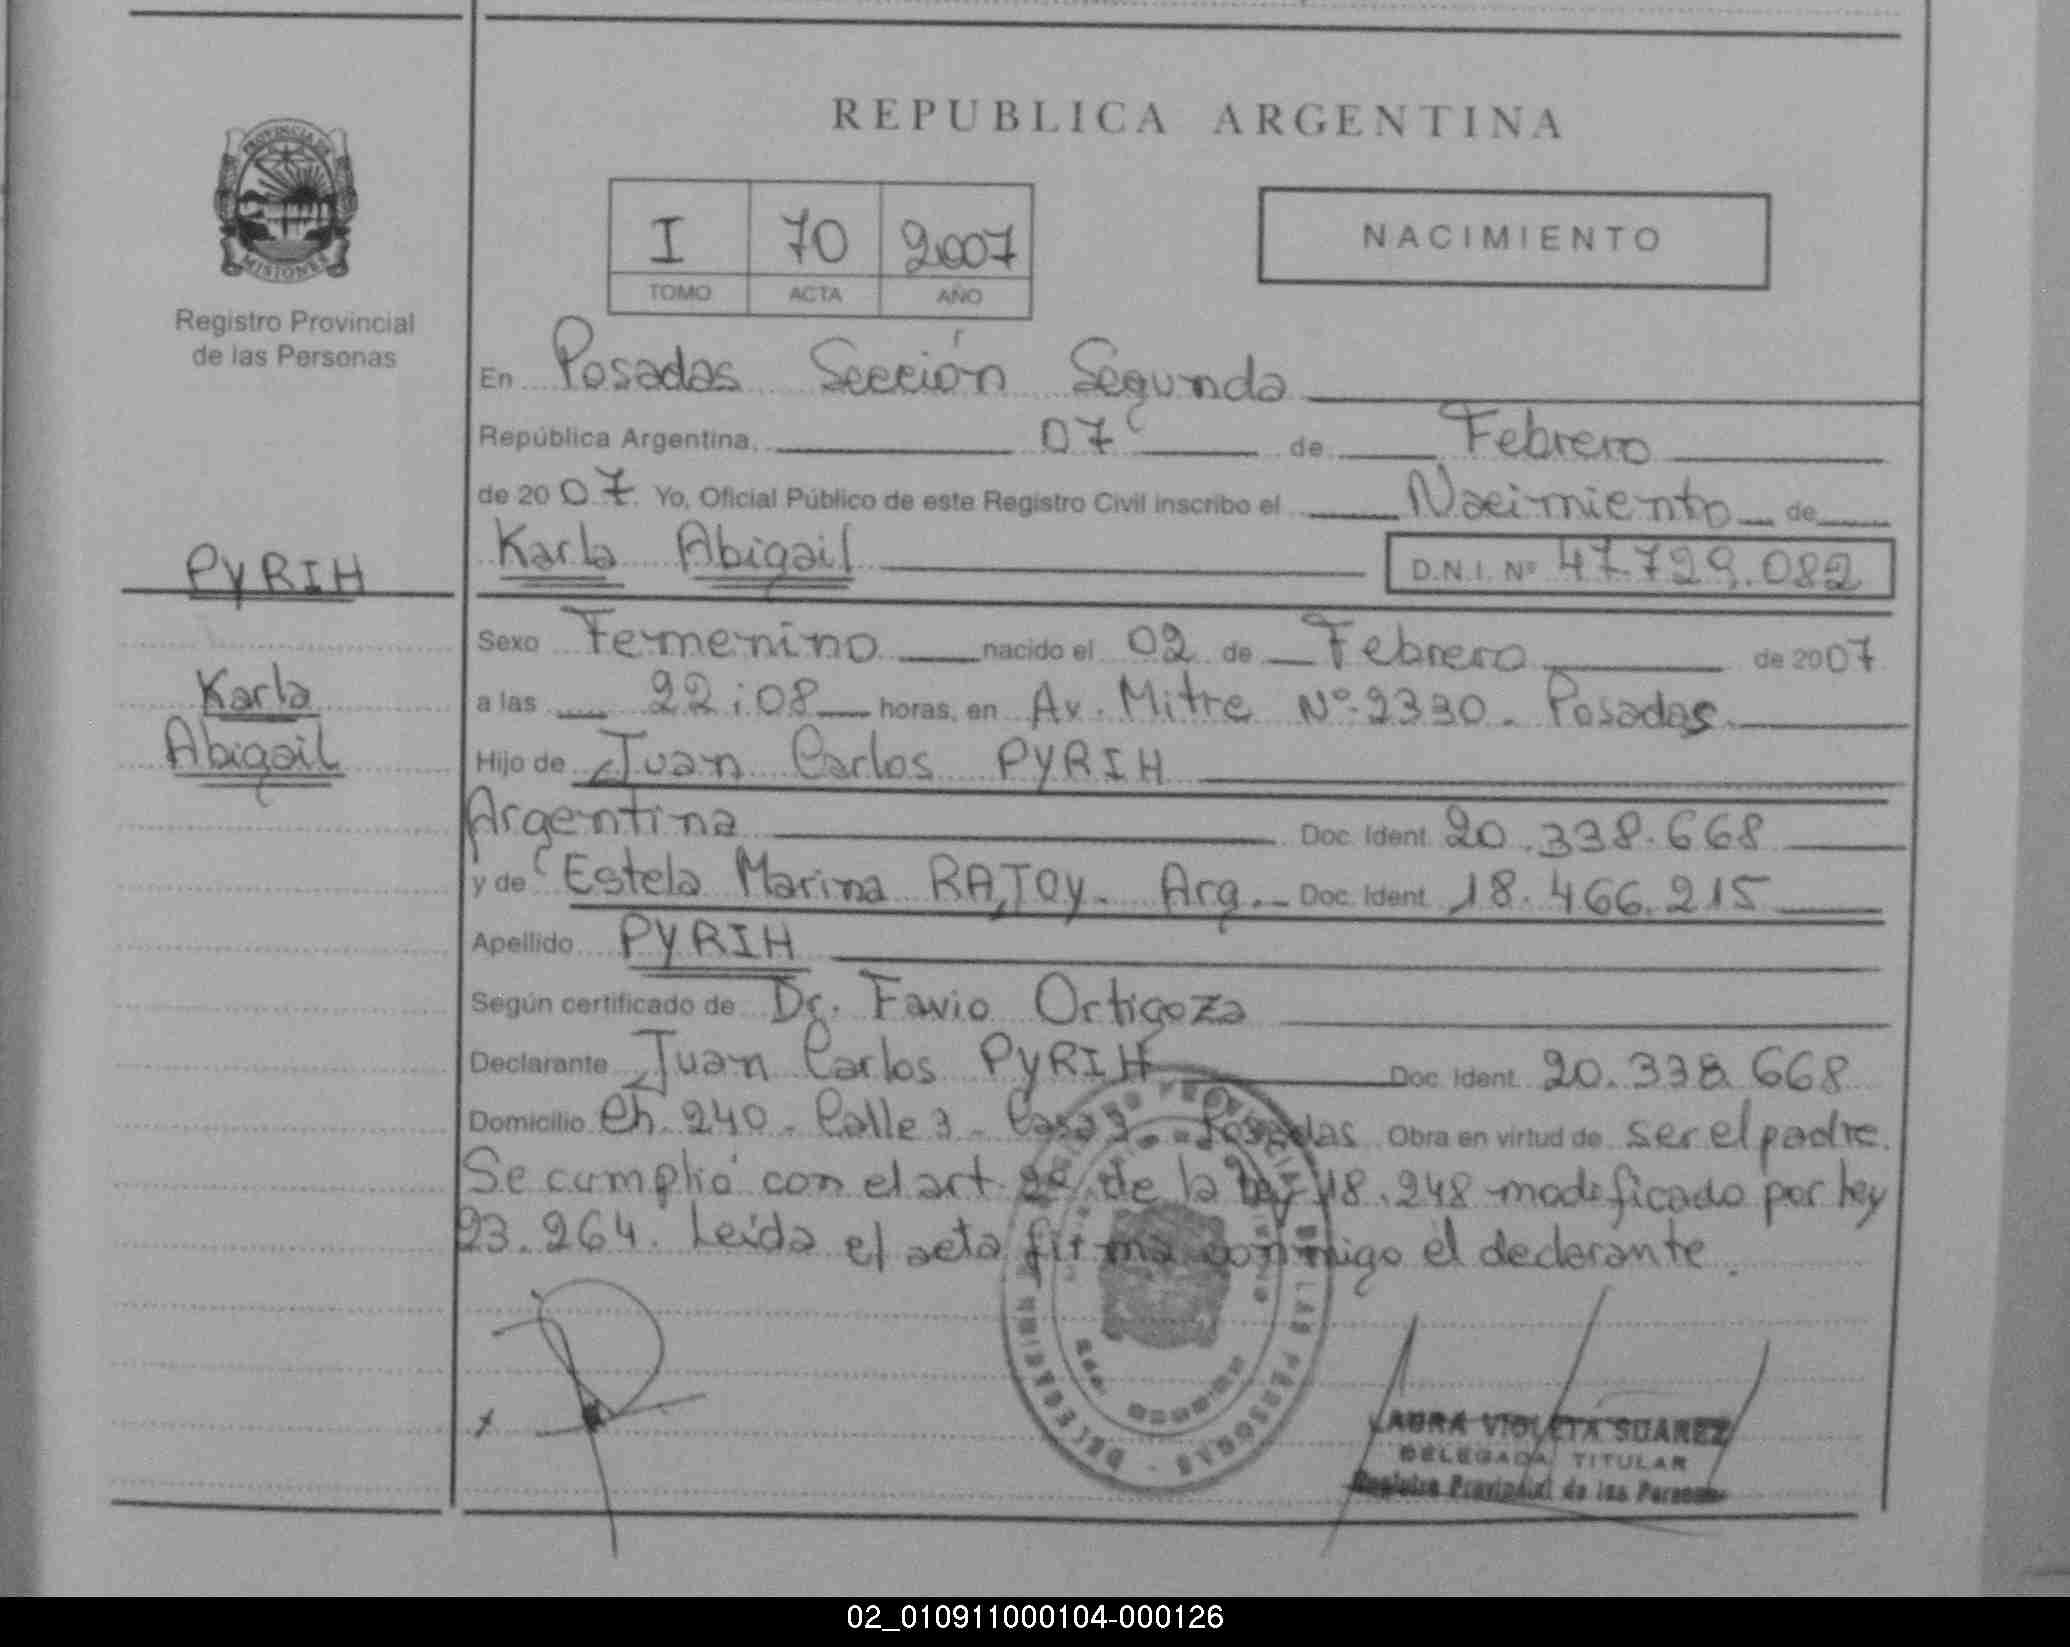 REPUBLICA ARGENTINA
PROVINCIA DE
MISIONES
Registro Provincial
de las Personas
I 70 2007
TOMO ACTA AÑO
NACIMIENTO
En Posadas Sección Segunda
República Argentina, 07 de Febrero
de 2007. Yo, Oficial Público de este Registro Civil inscribo el Nacimiento de
Karla Abigail D.N.I. Nº 47.729.082
PYRIH
Karla
Abigail
Sexo Femenino nacido el 02 de Febrero de 2007
a las 22:08 horas, en Av. Mitre Nº 2330. Posadas
Hijo de Juan Carlos PYRIH
Argentina Doc. Ident. 20.338.668
y de Estela Marina RAJOY. Arg. Doc. Ident. 18.466.215
Apellido PYRIH
Según certificado de Dr. Favio Ortigoza
Declarante Juan Carlos PYRIH Doc. Ident. 20.338.668
Domicilio Ch. 240 - Calle 3 - Casa 3 - Posadas Obra en virtud de ser el padre.
Se cumplió con el art. de la ley 18.248 modificado por ley
23.264. Leída el acta firma conmigo el declarante.
REGISTRO PROVINCIAL DE LAS PERSONAS
LAURA VIOLETA SUAREZ
DELEGADA TITULAR
Registro Provincial de las Personas
02_010911000104-000126